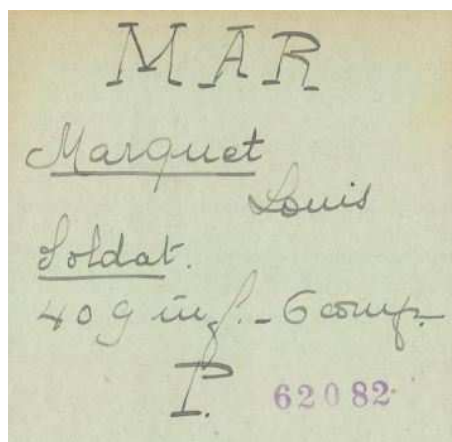 MAR
Marquet
Louis
Soldat.
409 inf. - 6 comp.
P. 62082.